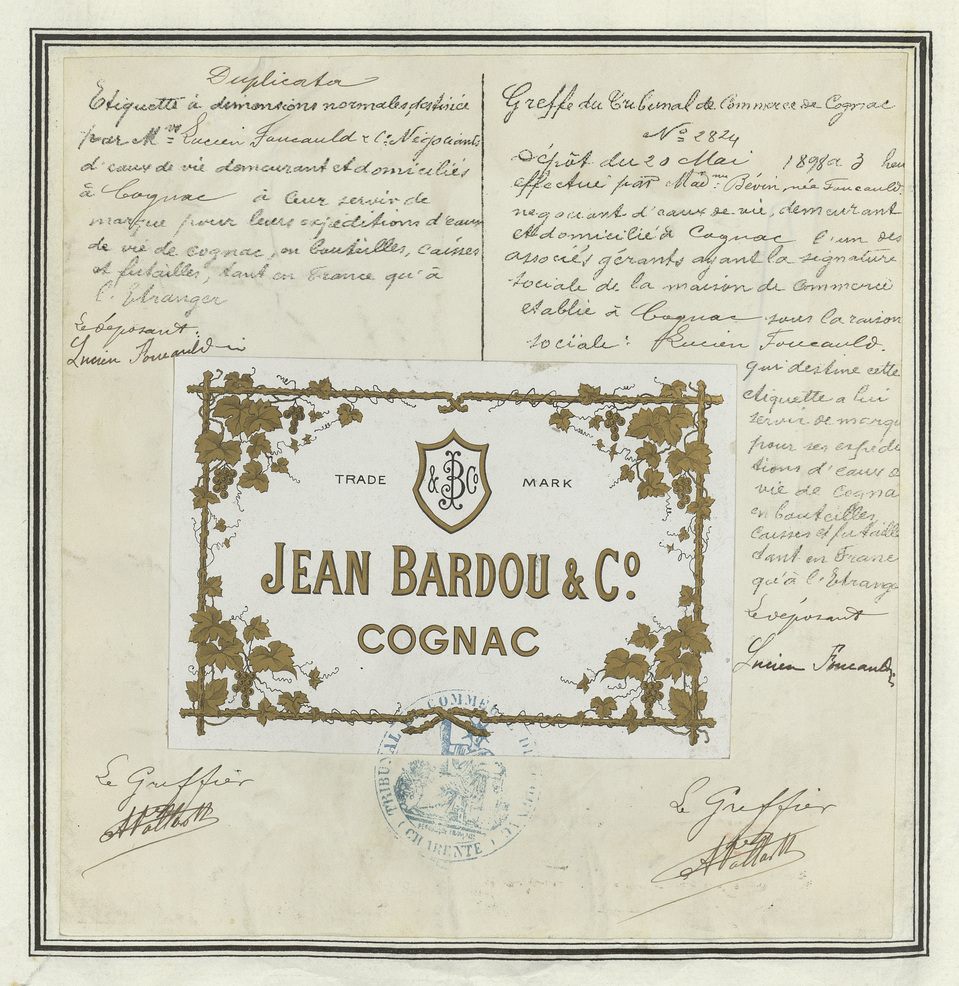 Duplicata
Etiquette à dimensions normales, destinée
par Mrs Lucien Foucauld & Cie Négociants
d'eaux de vie demeurant et domiciliés
à Cognac à leur servir de
marque pour leurs expéditions d'eaux
de vie de cognac, en bouteilles, caisses
et futailles, tant en France qu'à
l'Etranger
Le déposant:
Lucien Foucauld
Greffe du Tribunal de Commerce de Cognac
No 2824
Dépôt du 20 Mai 1898 à 3 heu
effectué par Made Bévin, née Foucauld.
negociant d'eaux de vie, demeurant
et domicilié à Cognac l'un des
associés gérants ayant la signature
sociale de la maison de commerce
etablie à Cognac sous la raison
sociale: Lucien Foucauld.
qui destine cette
étiquette a lui
servir de marqu
pour ses expédi
tions d'eaux d
vie de Cogna
en bouteilles,
caisses et futaille
tant en Franc
qu'à l'Etrange
Le déposant
Lucien Foucauld
& JB Co
TRADE MARK
JEAN BARDOU & Co.
COGNAC
TRIBUNAL DE COMMERCE DE
(CHARENTE)
Le Greffier
Le Greffier